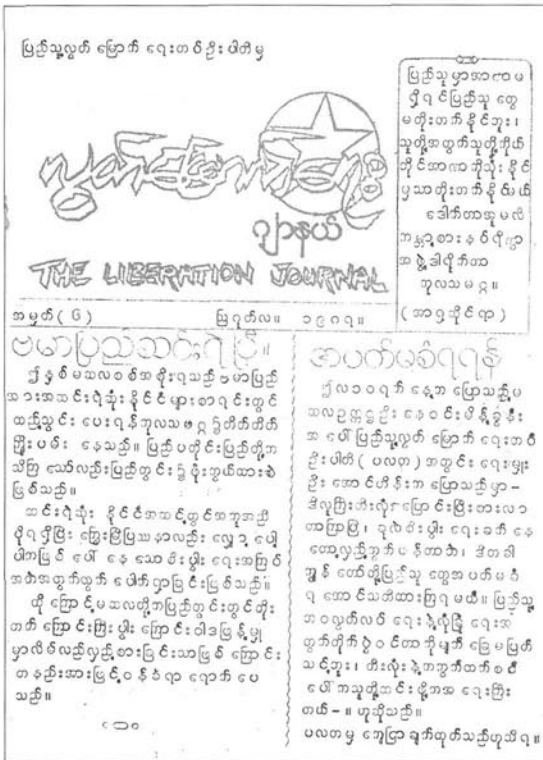 ပြည်သူ့လွတ်မြောက်ရေးတစ်ဦးပါတီမှ
ပြည်သူမှာအာဏာမ
ရှိရင်ပြည်သူတွေ
မတိုးတက်နိုင်ဘူး၊
သူတို့အတွက်သူတို့ကိုယ်
တိုင်အာဏာကိုသုံးနိုင်
မှသာတိုးတက်နိုင်မယ်
ဒေါက်တာ
ကမ္ဘာ့စားနပ်ရိက္ခာ
အဖွဲ့ဒါရိုက်တာ
ကုလသမဂ္ဂ။
(အာရှဆိုင်ရာ)
လွတ်မြောက်ရေး
ဂျာနယ်
THE LIBERATION JOURNAL
အမှတ်(၆) ဩဂုတ်လ။ ၁၉၈၇။
ဗမာပြည်သင်းရဲပြီ။
ဤနှစ်မဆလစစ်အစိုးရသည်ဗမာပြည်
အားအဆင်းရဲဆုံးနိုင်ငံများစာရင်းတွင်
ထည့်သွင်းပေးရန်ကုလသမဂ္ဂ၌တိတ်တိတ်
ကြိုးပမ်းနေသည်။ ပြည်ပတိုင်းပြည်တို့က
သိကြသော်လည်းပြည်တွင်း၌ဖုံးကွယ်ထားစဲ
ဖြစ်သည်။
ဆင်းရဲဆုံးနိုင်ငံအဆင့်တွင်အကူအညီ
ပိုရရှိပြီးကြွေးမြီပြဿနာလည်းလျှော့ပေါ့
ပါကဖြင့်ပေါ်နေသောစီးပွါးရေးအကြပ်
အတည်းအတွက်ထွက်ပေါက်ရှာခြင်းဖြစ်သည်။
ထို့ကြောင့်မဆလတို့ကပြည်တွင်းတွင်တိုး
တက်ကြောင်းကြီးပွါးကြောင်းဝါဒဖြန့်မှု
မှာလိမ်လည်လှည့်စားခြင်းသာဖြစ်ကြောင်း
တနည်းအားဖြင့်ဝန်ခံရာရောက်ပေ
သည်။
အပက်မခံရရန်
ဩလ၁၀ရက်နေ့ကပြောသည့်မ
ဆလဥက္ကဋ္ဌဦးနေဝင်းမိန့်ခွန်း
အပေါ်ပြည်သူ့လွတ်မြောက်ရေးတစ်
ဦးပါတီ(ပလတ)အတွင်းရေးမှူး
ဦးအောင်ဟိန်းကပြောသည်မှာ-
တော့လှည့်ကွက်ပန်တာဘဲ၊ ဒီတခါ
ကျွန်တော်တို့ပြည်သူတွေအပတ်မခံ
ရအောင်သတိထားကြရမယ်။ ပြည်သူ့
ဘဝလွတ်လပ်ရေးနဲ့လုံခြုံရေးအ
တွက်တိုက်ပွဲဝင်တာကိုမျက်ခြေမပြတ်
သင့်ဘူး၊
တယ်-။ ဟုဆိုသည်။
ပလတမှကြေငြာချက်ထုတ်သည်ဟုသိရ။